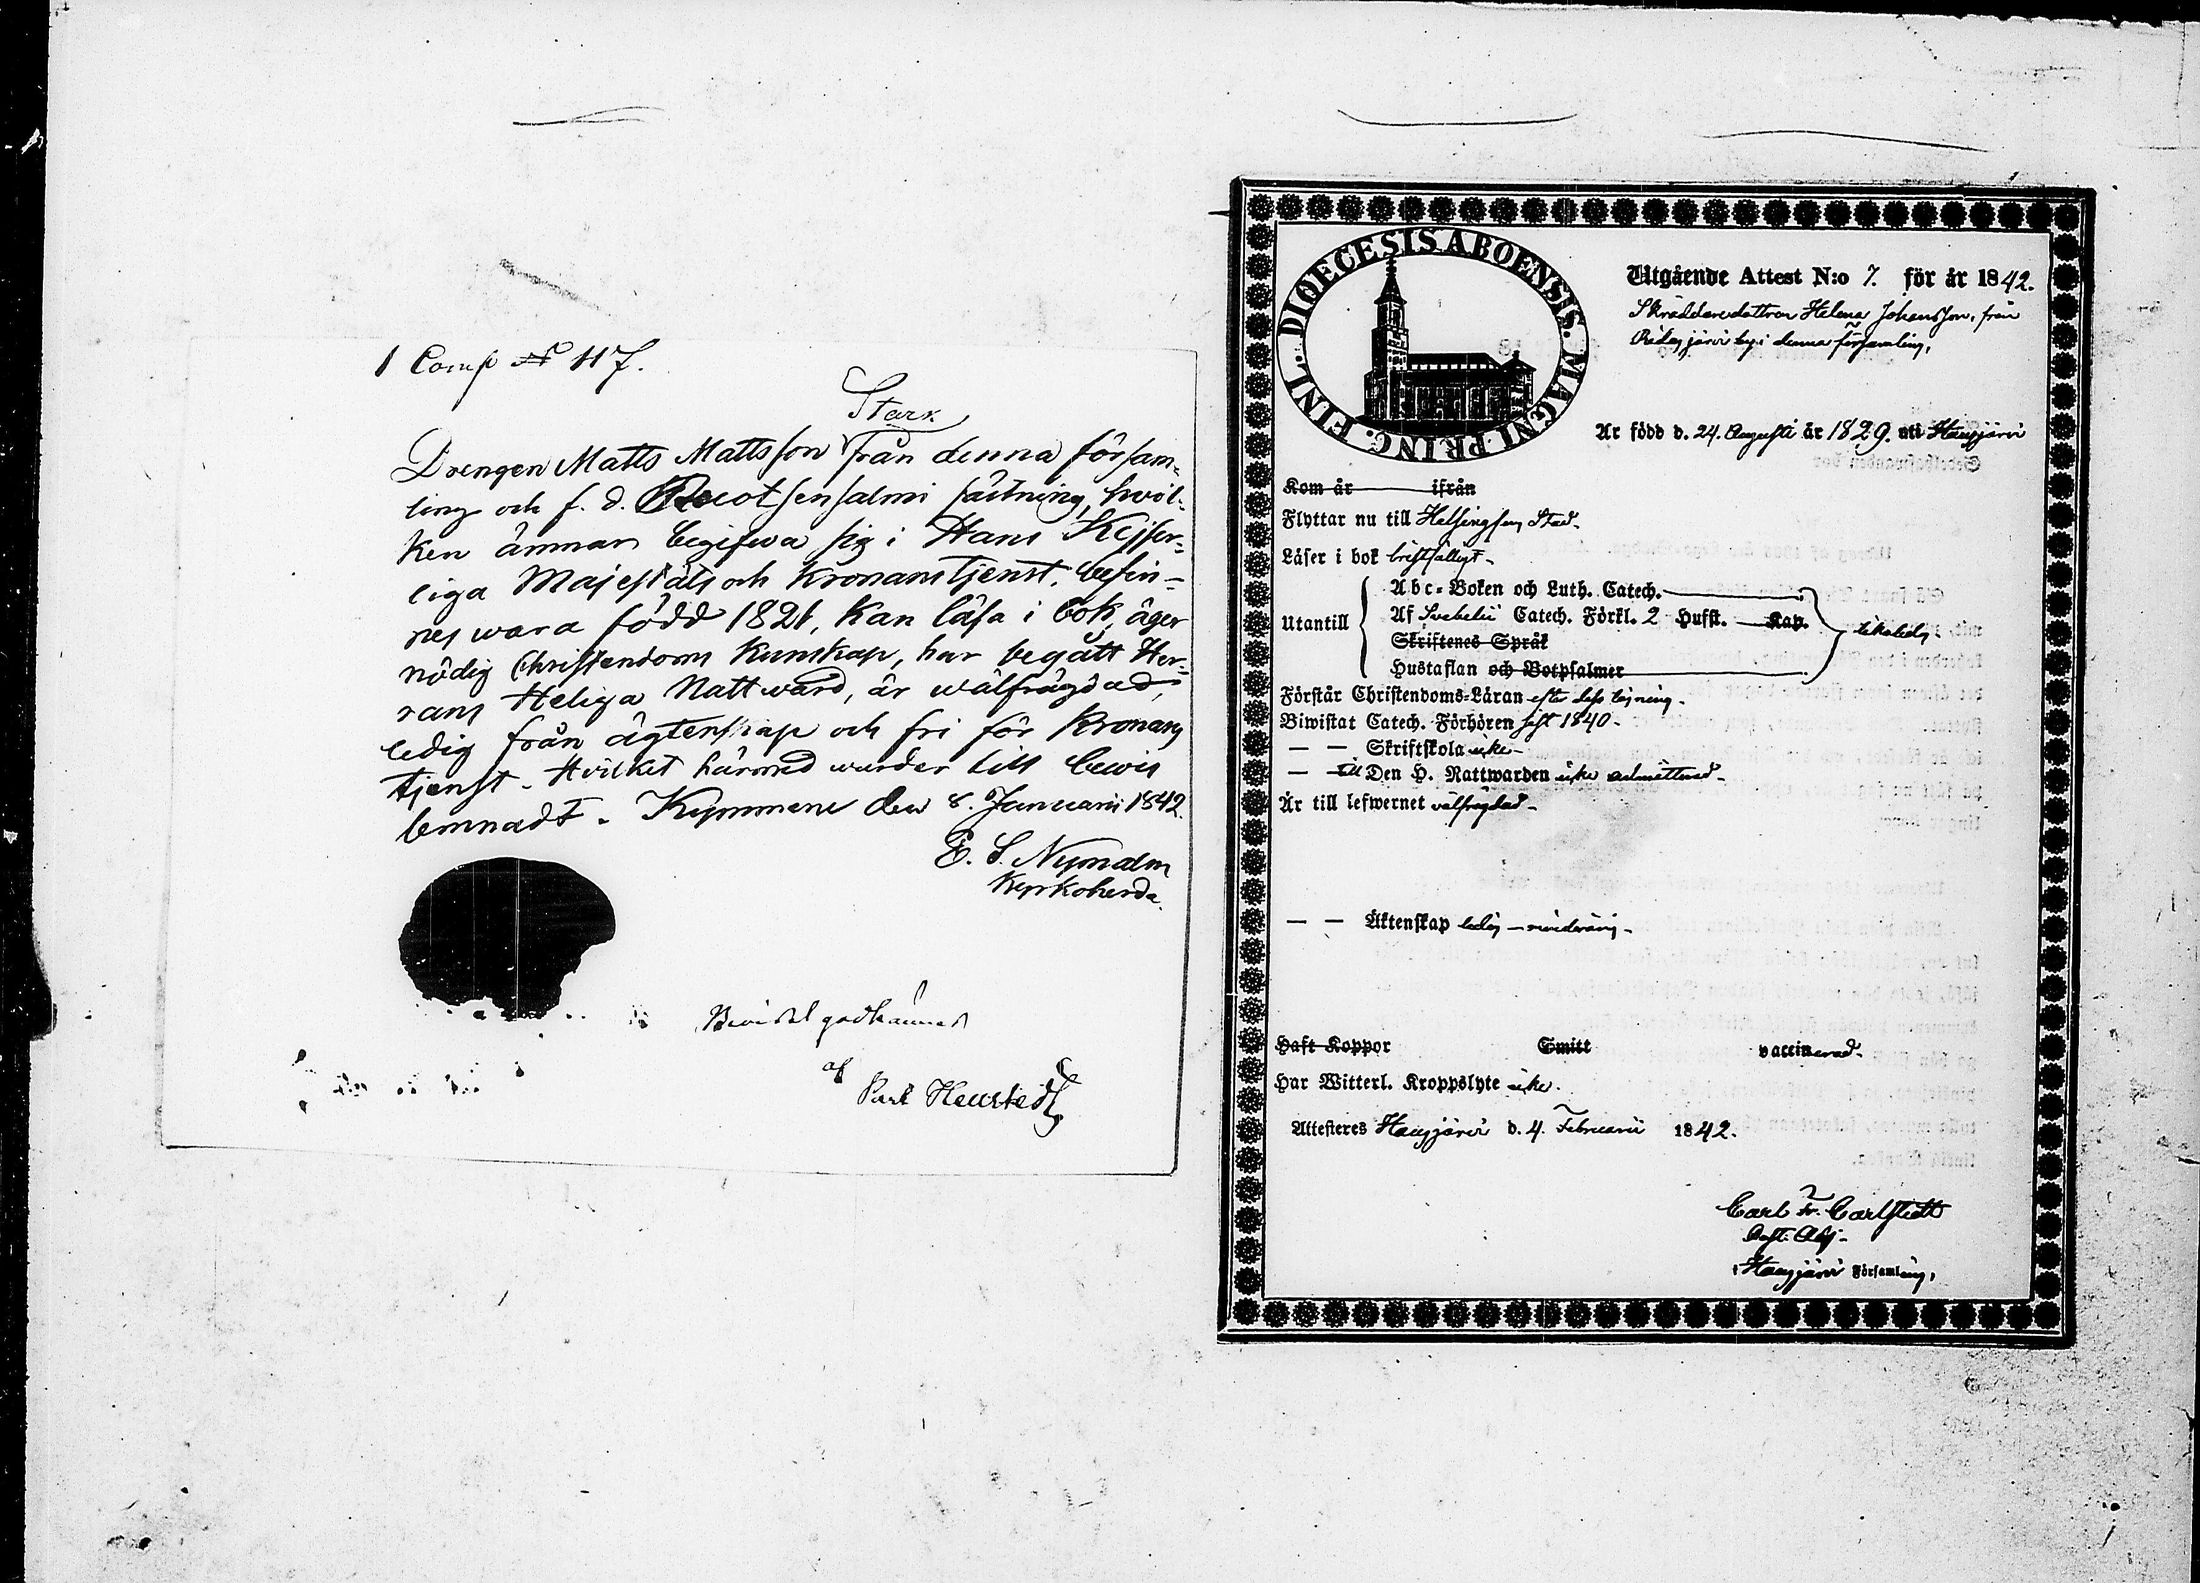 1 Comp № 117.
Stark
Drengen Matts Mattsson från denna försam-
ling och f. d. Ruotsensalmi fästning, hvil-
ken ämnar begifwa sig i Hans Kejser-
liga Majestäts och Kronans tjenst, befin-
nes wara född 1821, kan läsa i bok, äger
nödig Christendoms kunskap, har begått Her-
rans Heliga Nattward, är wälfrägdad,
ledig från ägtenskap och fri för Kronans
tjenst. Hvilket härmed warder till bewis
lemnadt. Kymmene den 8. Januarii 1842.
E. S. Nymalm
Kyrkoherde.
godkännes
af
DIOECESIS ABOENSIS. MAGNI PRINC. FINL.
Utgående Attest N:o 7. för år 1842.
Skräddaredottren Helena Johansson, från
by i denna församling,
Är född d. 24. Augusti år 1829. uti Hausjärvi
Kom år ifrån
Flyttar nu till Helsingfors Stad.
Läser i bok bristfälligt.
Utantill
Abc-Boken och Luth. Catech.
Af Svebelii Catech. Förkl. 2 Hufst. Kap.
Skriftenes Språk
Hustaflan och Botpsalmer
likaledes
Förstår Christendoms-Läran efter dess läsning.
Biwistat Catech. Förhören sist 1840.
— — Skriftskola icke
— — till Den H. Nattwarden icke admitterad.
Är till lefwernet välfrägdad.
— — Äktenskap ledig — minderårig.
Haft Koppor Smitt vaccinerad.
Har Witterl. Kroppslyte icke.
Attesteres Hausjärvi d. 4. Februarii 1842.
Carl Fr. Carlstedt
i Hausjärvi Församling,